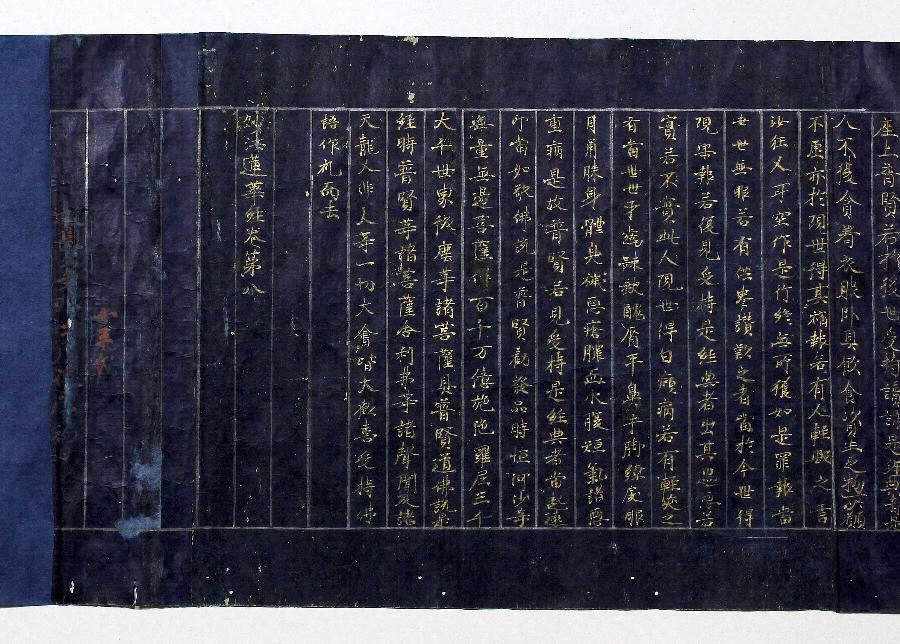 座上普賢若於後世受持讀誦是經典者是
人不復貪著衣服臥具飲食資生之物所願
不虛亦於現世得其福報若有人輕毀之言
汝狂人耳空作是行終無所獲如是罪報當
世世無眼若有供養讚歎之者當於今世得
現果報若復見受持是經典者出其過惡若
實若不實此人現世得白癩病若有輕笑之
者當世世牙齒踈缺醜脣平鼻手脚繚戾眼
目角睞身體臭穢惡瘡膿血水腹短氣諸惡
重病是故普賢若見受持是經典者當起遠
迎當如敬佛說是普賢勸發品時恒河沙等
無量無邊菩薩得百千万億旋陀羅尼三千
大千世界微塵等諸菩薩具普賢道佛說是
經時普賢等諸菩薩舍利弗等諸聲聞及諸
天龍人非人等一切大會皆大歡喜受持佛
語作礼而去
妙法蓮華經卷第八